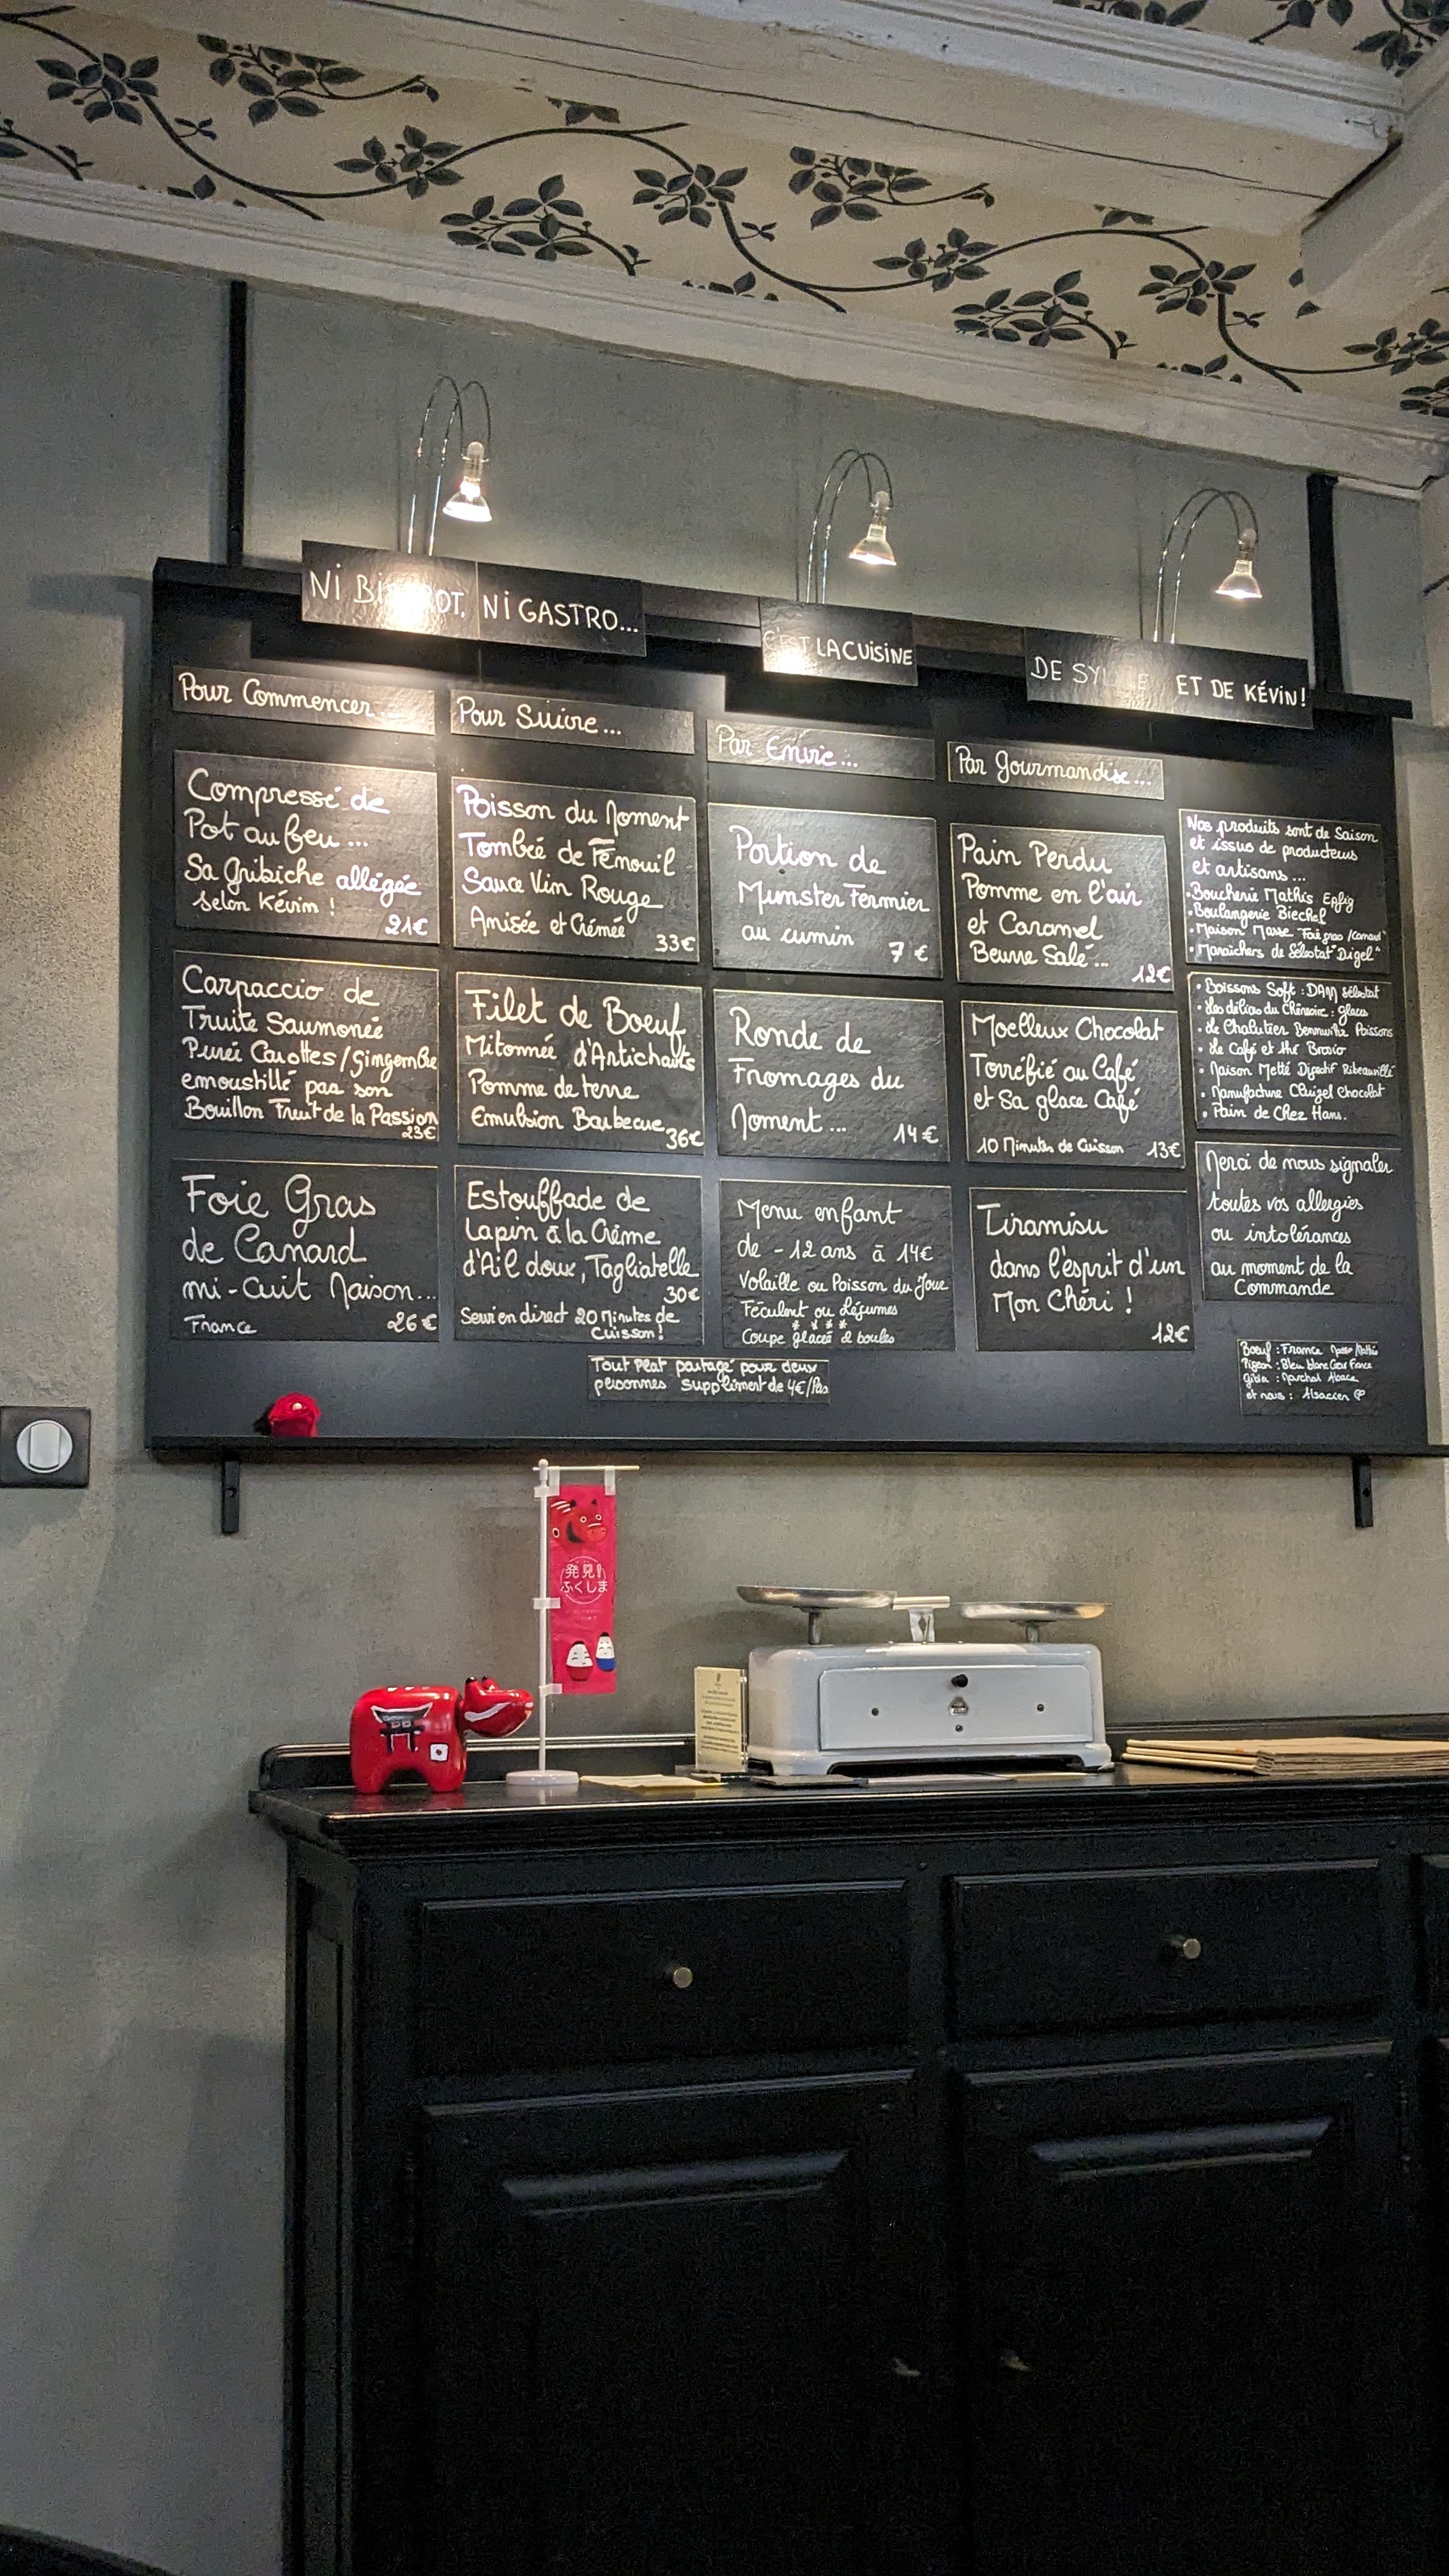 NI BISTROT, NI GASTRO...
C'EST LA CUISINE
DE SYLVIE ET DE KÉVIN!
Pour Commencer...
Compressé de
Pot au feu ...
Sa Gribiche allégée
selon Kévin !
21€
Carpaccio de
Truite Saumonée
Purée Carottes/Gingembre
emoustillé par son
Bouillon Fruit de la Passion
23€
Foie Gras
de Canard
mi-cuit Maison...
France
26€
Pour Suivre...
Poisson du Moment
Tombée de Fenouil
Sauce Vin Rouge
Anisée et Crémée
33€
Filet de Boeuf
Mitonnée d'Artichauts
Pomme de terre
Emulsion Barbecue
36€
Estouffade de
Lapin à la Crème
d'Ail doux, Tagliatelle
30€
Servi en direct 20 Minutes de
Cuisson!
Par Envie...
Portion de
Munster Fermier
au cumin
7 €
Ronde de
Fromages du
Moment...
14€
Menu enfant
de -12 ans à 14€
Volaille ou Poisson du Jour
Féculent ou Légumes
****
Coupe glacée 2 boules
Par Gourmandise...
Pain Perdu
Pomme en l'air
et Caramel
Beurre Salé...
12€
Moelleux Chocolat
Torréfié au Café
et Sa glace Café
10 Minutes de Cuisson
13€
Tiramisu
dans l'esprit d'un
Mon Chéri !
12€
Nos produits sont de Saison
et issus de producteurs
et artisans ...
•Boucherie Mathis Epfig
•Boulangerie Biechel
•Maison Masse "Foie gras/Canard"
•Maraîchers de Sélestat "Digel"
• Boissons Soft : DAM Sélestat
• Les délices du Chênaire : glaces
• Le Chalutier Poissons
• Le Café et thé Bravio
• Maison Metté Digestif Ribeauvillé
• Manufacture Cluizel Chocolat
• Pain de Chez Hans.
Merci de nous signaler
toutes vos allergies
ou intolérances
au moment de la
Commande
Tout Plat partagé pour deux
personnes supplément de 4€/Pas
Boeuf : France Masse/Mathis
Pigeon : Bleu blanc Coeur France
Gibier : Marchal Alsace
et nous : Alsacien
発見!
ふくしま